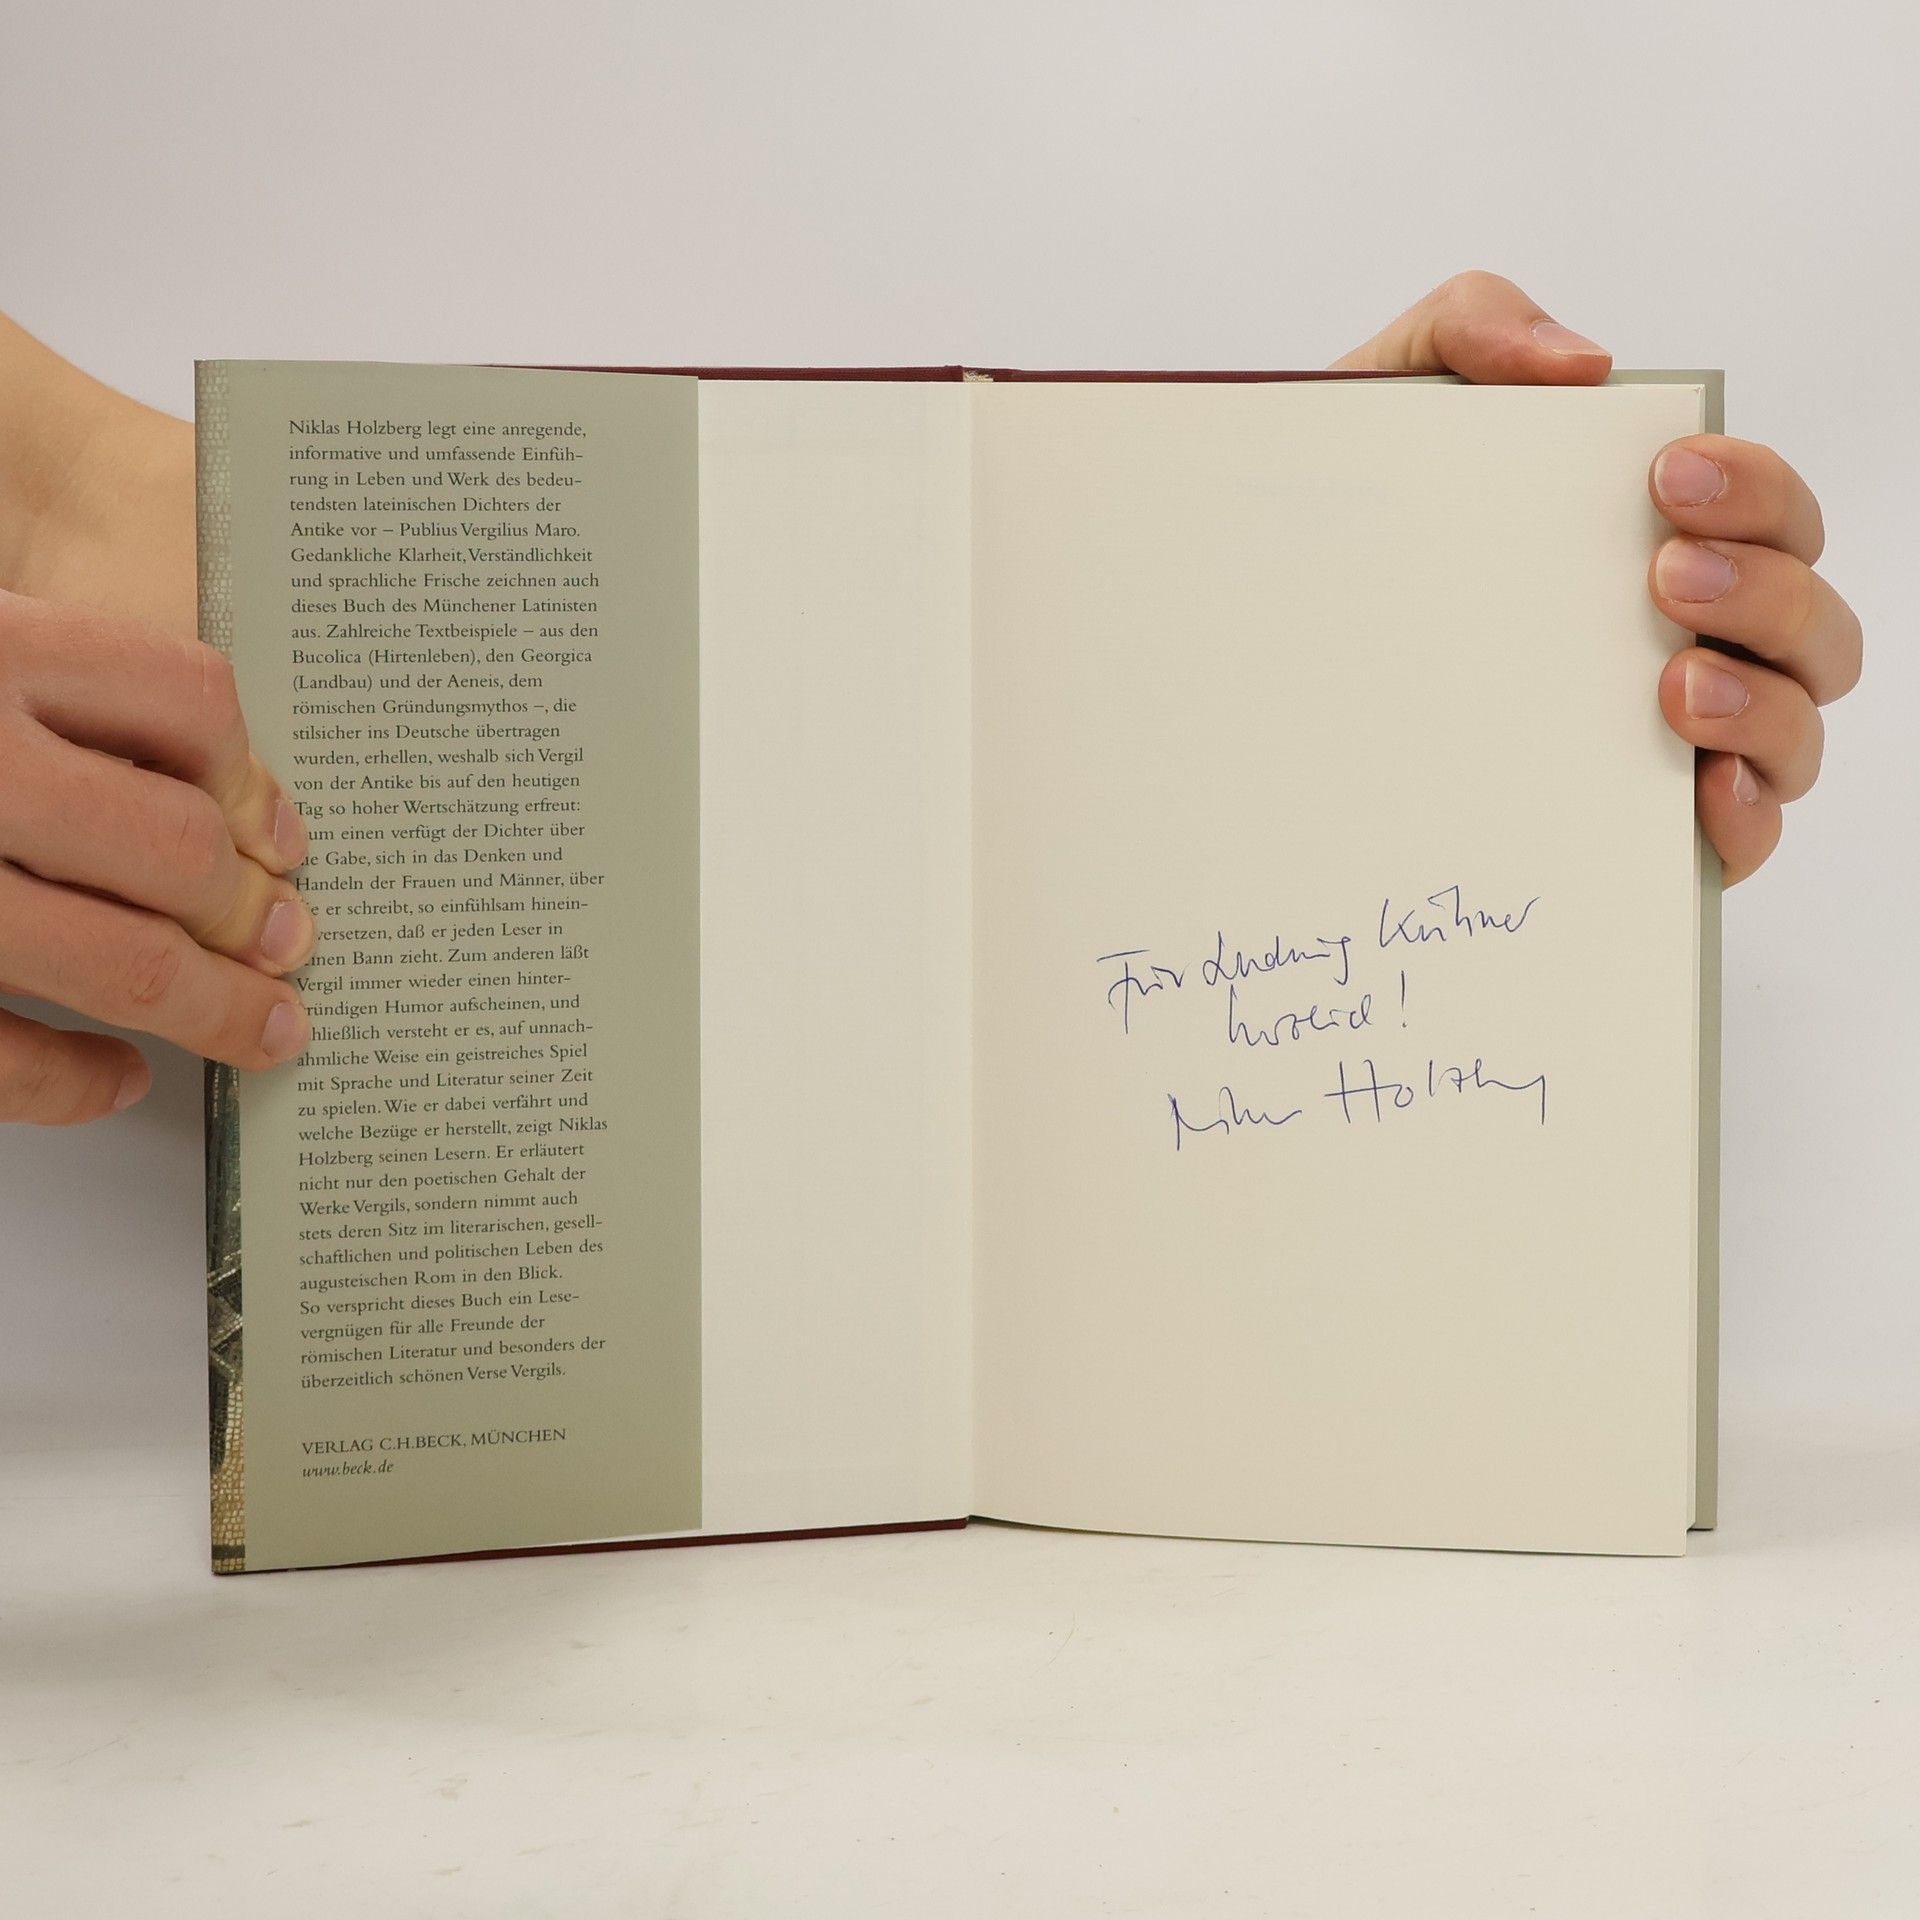 Niklas Holzberg legt eine anregende,
informative und umfassende Einfüh-
rung in Leben und Werk des bedeu-
tendsten lateinischen Dichters der
Antike vor – Publius Vergilius Maro.
Gedankliche Klarheit, Verständlichkeit
und sprachliche Frische zeichnen auch
dieses Buch des Münchener Latinisten
aus. Zahlreiche Textbeispiele – aus den
Bucolica (Hirtenleben), den Georgica
(Landbau) und der Aeneis, dem
römischen Gründungsmythos –, die
stilsicher ins Deutsche übertragen
wurden, erhellen, weshalb sich Vergil
von der Antike bis auf den heutigen
Tag so hoher Wertschätzung erfreut:
um einen verfügt der Dichter über
ie Gabe, sich in das Denken und
Handeln der Frauen und Männer, über
e er schreibt, so einfühlsam hinein-
versetzen, daß er jeden Leser in
einen Bann zieht. Zum anderen läßt
Vergil immer wieder einen hinter-
ründigen Humor aufscheinen, und
hließlich versteht er es, auf unnach-
ahmliche Weise ein geistreiches Spiel
mit Sprache und Literatur seiner Zeit
zu spielen. Wie er dabei verfährt und
welche Bezüge er herstellt, zeigt Niklas
Holzberg seinen Lesern. Er erläutert
nicht nur den poetischen Gehalt der
Werke Vergils, sondern nimmt auch
stets deren Sitz im literarischen, gesell-
schaftlichen und politischen Leben des
augusteischen Rom in den Blick.
So verspricht dieses Buch ein Lese-
vergnügen für alle Freunde der
römischen Literatur und besonders der
überzeitlich schönen Verse Vergils.
VERLAG C.H.BECK, MÜNCHEN
www.beck.de
Für Ludwig Kühner
herzlich!
Niklas Holzberg